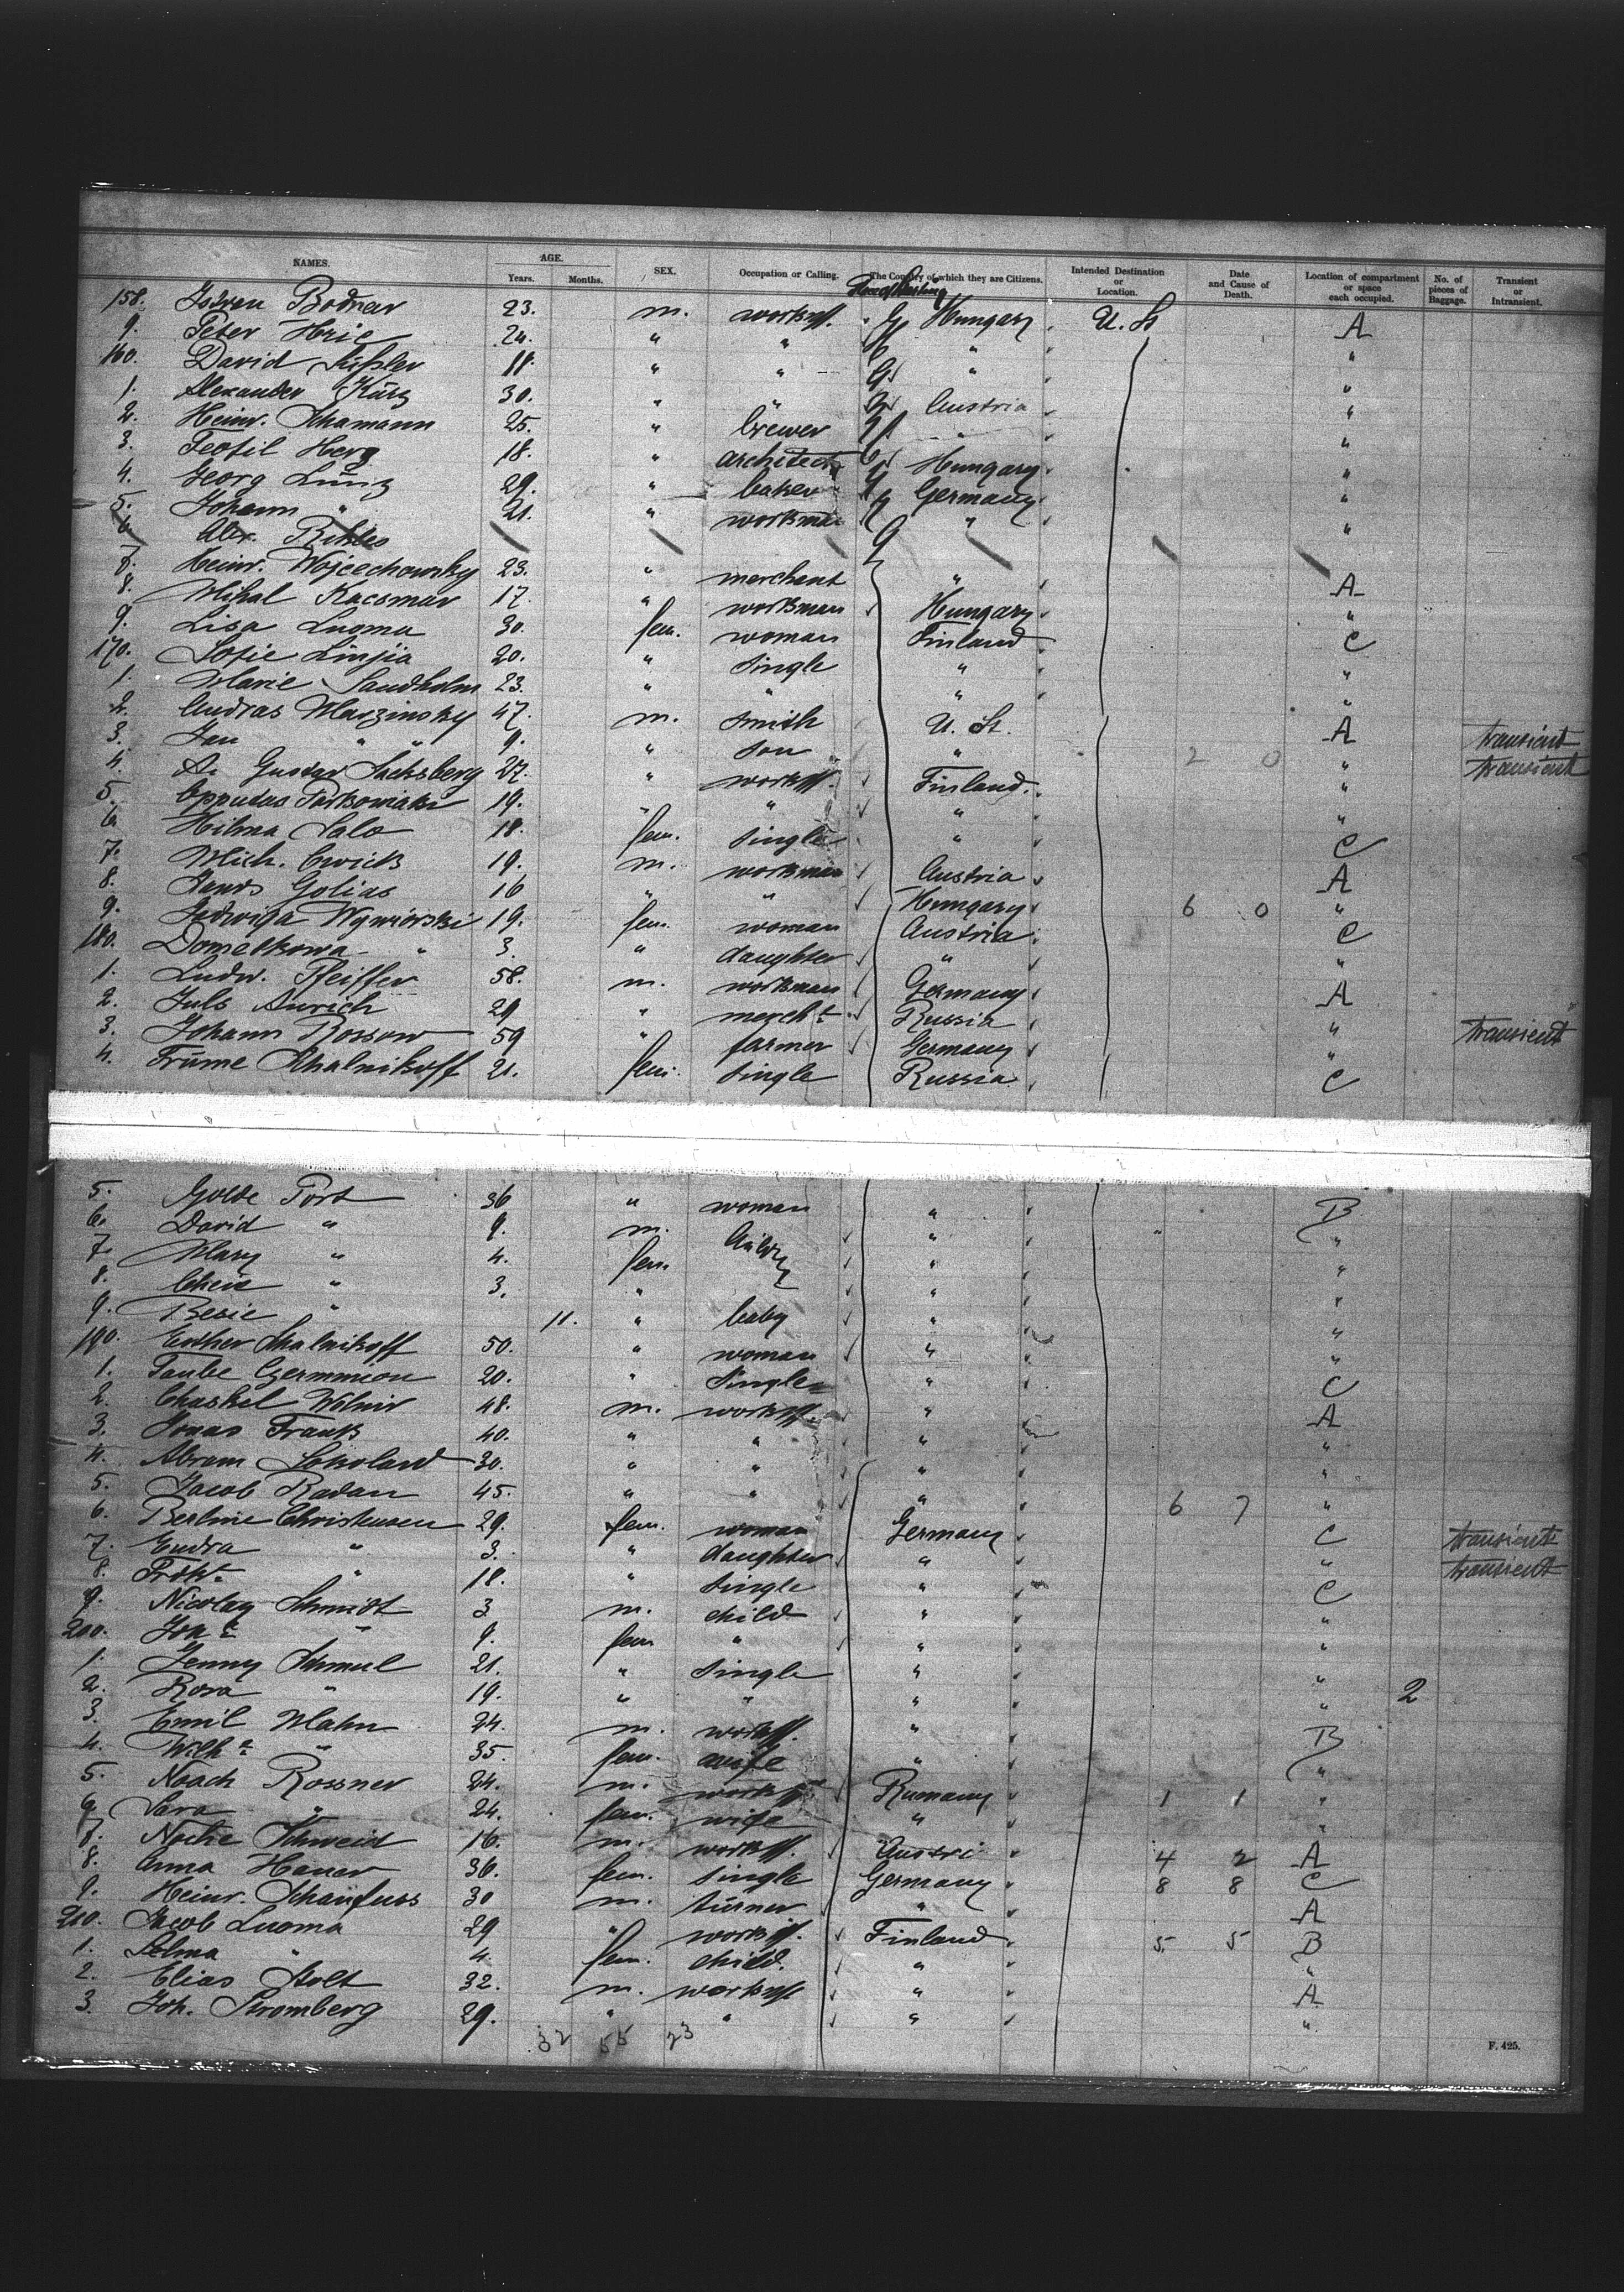 NAMES. AGE. Years. Months. SEX. Occupation or Calling. The Country of which they are Citizens. Intended Destination or Location. Date and Cause of Death. Location of compartment or space each occupied. No. of pieces of Baggage. Transient or Intransient.
158. Bodnar 23. m. Hungary U. St A
9. Peter Hric 24. " " " "
160. David 18. " " " "
1. Alexander Kurz 30. " " Austria "
2. Heinr. Schamann 25. " brewer " "
3. Teofil Herz 18. " architect Hungary "
4. Georg Lunz 29. " baker Germany "
5. Johann " 21. " workman " "
6. Alex.
7. Heinr. Wojcechowsky 23. " merchant " A
8. Mihal Kacsmar 17. " workman Hungary "
9. Lisa Luoma 30. fem. woman Finland C
170. Sofie Linjia 20. " single " "
1. Marie Sandholm 23. " " " "
2. Andras Marzinsky 47. m. smith U. St. A transient
3. Jan " 9. " son " 2 0 " transient
4. A. Gustav Sacksberg 27. " Finland. "
5. 19. " " " "
6. Hilma Salo 18. fem. single " C
7. Mich. Cwick 19. m. workman Austria A
8. Golias 16 " " Hungary 6 0 "
9. Jadwiga 19. fem. woman Austria C
180. " 3. " daughter " "
1. Ludw. Pfeiffer 58. m. workman Germany A
2. Juls Aurich 29 " mercht Russia "
3. Johann Rossow 59 " farmer Germany " transient
4. Frume Schalnikoff 21. fem. single Russia C
5. Golde Port 36 " woman " B
6. David " 9. m. " "
7. Mary " 4. fem. " "
8. " 3. " " "
9. Besie " 11. " baby " "
190. Esther Schalnikoff 50. " woman " "
1. Taube 20. " Single " C
2. Chaskel 48. m. " A
3. Jonas Frank 40. " " " "
4. Abram 30. " " " "
5. Jacob Radan 45. " " " 6 7 "
6. Christensen 29. fem. woman Germany C transient
7. Endra " 3. " daughter " " transient
8. " 18. " single " C
9. Nicolay Schmidt 3 m. child " "
200. 9. fem " " "
1. Jenny Schmul 21. " single " "
2. Rosa " 19. " " " " 2
3. Emil Mahn 24. m. " B
4. " 35. fem. wife " "
5. Noach Rossner 24. m. Rumany 1 1 "
6. Sara " 24. fem. wife " "
7. Schweid 16. m. Austri 4 2 A
8. Anna Hauer 36. fem. single Germany 8 8 C
9. Heinr. Schaufuss 30 m. turner " A
210. Jacob Luoma 29 " Finland 5 5 B
1. Selma " 4. fem. child. " "
2. Elias Holt 32. m. " A
3. Joh. Stromberg 29. " " " "
32 55 23
F. 425.